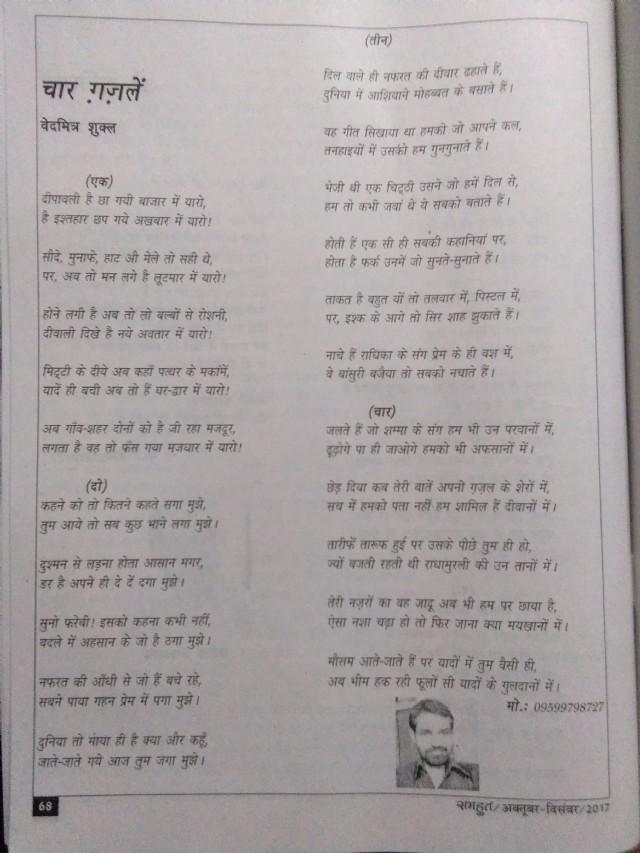 चार ग़ज़लें
वेदमित्र शुक्ल
(एक)
दीपावली है छा गयी बाजार में यारो,
है इश्तहार छप गये अखबार में यारो!
सौदे, मुनाफे, हाट औ मेले तो सही थे,
पर, अब तो मन लगे है लूटमार में यारो!
होने लगी है अब तो लो बल्बों से रोशनी,
दीवाली दिखे है नये अवतार में यारो!
मिट्टी के दीये अब कहाँ पत्थर के मकां में,
यादें ही बची अब तो हैं घर-द्वार में यारो!
अब गाँव-शहर दोनों को है जी रहा मजदूर,
लगता है वह तो फँस गया मजधार में यारो!
(दो)
कहने को तो कितने कहते सगा मुझे,
तुम आये तो सब कुछ भाने लगा मुझे।
दुश्मन से लड़ना होता आसान मगर,
डर है अपने ही दे दें दगा मुझे।
सुनो फरेबी! इसको कहना कभी नहीं,
बदले में अहसान के जो है ठगा मुझे।
नफरत की आँधी से जो हैं बचे रहे,
सबने पाया गहन प्रेम में पगा मुझे।
दुनिया तो माया ही है क्या और कहूँ,
जाते-जाते गये आज तुम जगा मुझे।
(तीन)
दिल वाले ही नफरत की दीवार ढहाते हैं,
दुनिया में आशियाने मोहब्बत के बसाते हैं।
वह गीत सिखाया था हमको जो आपने कल,
तनहाइयों में उसको हम गुनगुनाते हैं।
भेजी थी एक चिट्ठी उसने जो हमें दिल से,
हम तो कभी जवां थे ये सबको बताते हैं।
होती हैं एक सी ही सबकी कहानियां पर,
होता है फर्क उनमें जो सुनते-सुनाते हैं।
ताकत है बहुत यों तो तलवार में, पिस्टल में,
पर, इश्क के आगे तो सिर शाह झुकाते हैं।
नाचे हैं राधिका के संग प्रेम के ही वश में,
वे बांसुरी बजैया तो सबको नचाते हैं।
(चार)
जलते हैं जो शम्मा के संग हम भी उन परवानों में,
ढूढ़ोगे पा ही जाओगे हमको भी अफसानों में।
छेड़ दिया कब तेरी बातें अपनी ग़ज़ल के शेरों में,
सच में हमको पता नहीं हम शामिल हैं दीवानों में।
तारीफें तारूफ हुई पर उसके पीछे तुम ही हो,
ज्यों बजती रहती थी राधामुरली की उन तानों में।
तेरी नज़रों का वह जादू अब भी हम पर छाया है,
ऐसा नशा चढ़ा हो तो फिर जाना क्या मयखानों में।
मौसम आते-जाते हैं पर यादों में तुम वैसी ही,
अब भीम हक रही फूलों सी यादों के गुलदानों में।
मो.: 09599798727
68
समहुत/अक्तूबर-दिसंबर/2017